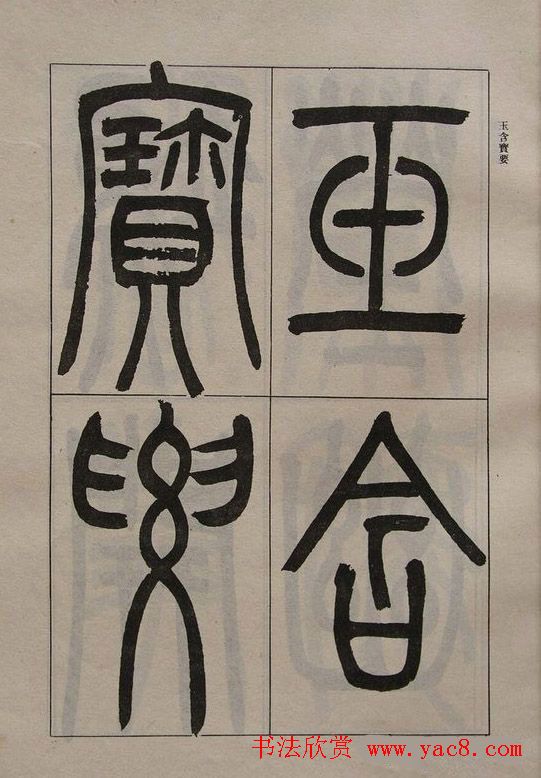 玉含寶要
玉含
寶要
书法欣赏 www.yac8.com